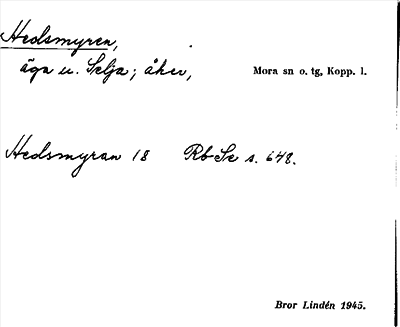 Hedsmyren,
äga u. Selja; åker, Mora sn o. tg, Kopp. l.
Hedsmyran 18 Rb Se s. 648.
Bror Lindén 1945.